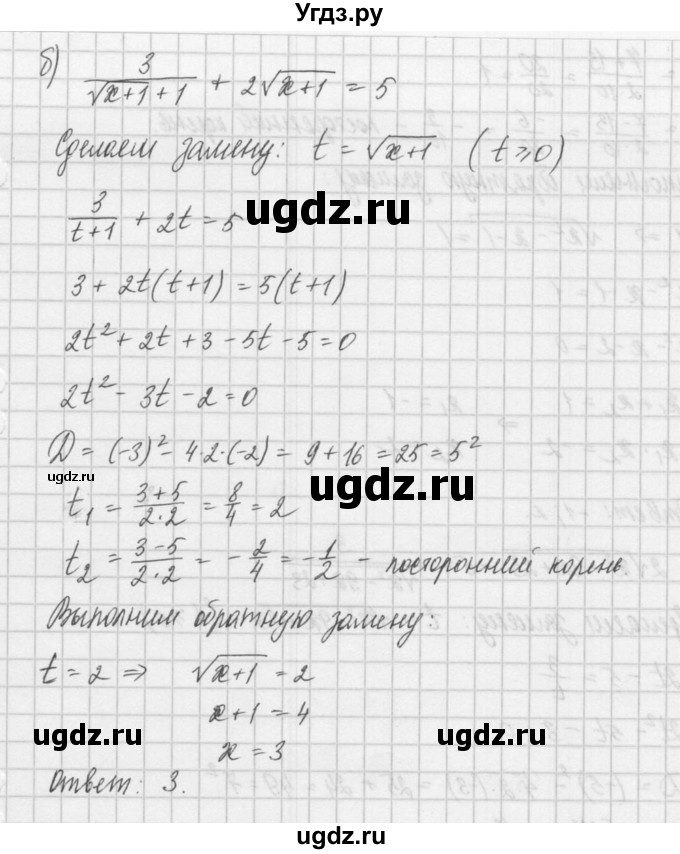 Угдз.ру
б) 3/√(x+1+1) + 2√(x+1) = 5
Сделаем замену: t = √(x+1) (t ≥ 0)
3/(t+1) + 2t = 5
ugdz.ru
3 + 2t(t+1) = 5(t+1)
2t² + 2t + 3 - 5t - 5 = 0
2t² - 3t - 2 = 0
D = (-3)² - 4·2·(-2) = 9 + 16 = 25 = 5²
ugdz.ru
ugdz.ru
t₁ = (3+5)/(2·2) = 8/4 = 2
t₂ = (3-5)/(2·2) = -2/4 = -1/2 - посторонний корень.
Выполним обратную замену:
t = 2 ⇒ √(x+1) = 2
x+1 = 4
ugdz.ru
ugdz.ru
x = 3
Ответ: 3.
ugdz.ru